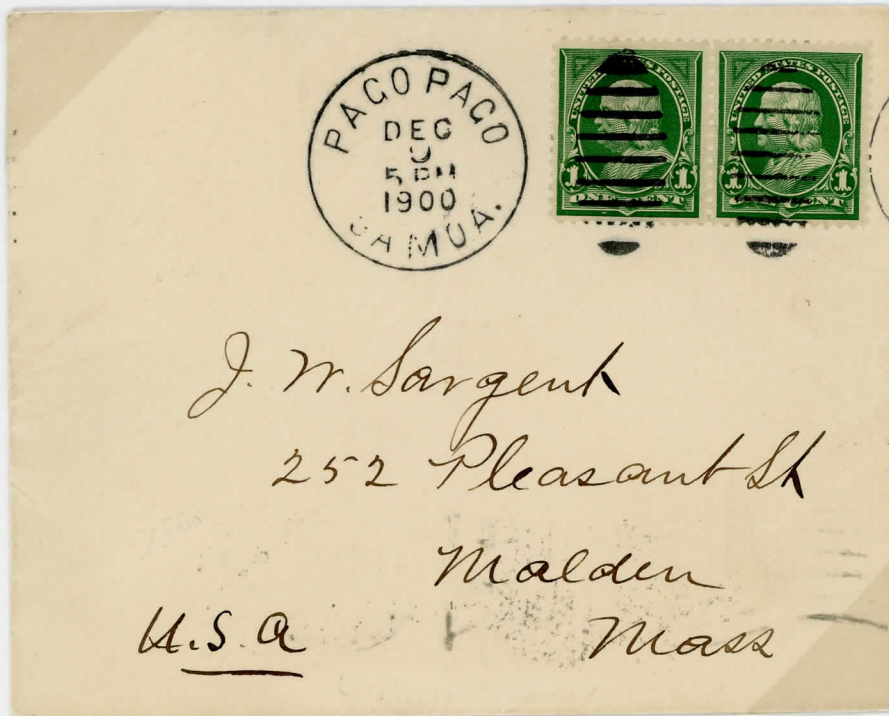 PAGO PAGO
DEC
9
5 PM
1900
SAMOA.
UNITED STATES POSTAGE
1 1
ONE CENT
UNITED STATES POSTAGE
1 1
ONE CENT
J. W. Sargent
252 Pleasant St
Malden
Mass
U.S.A